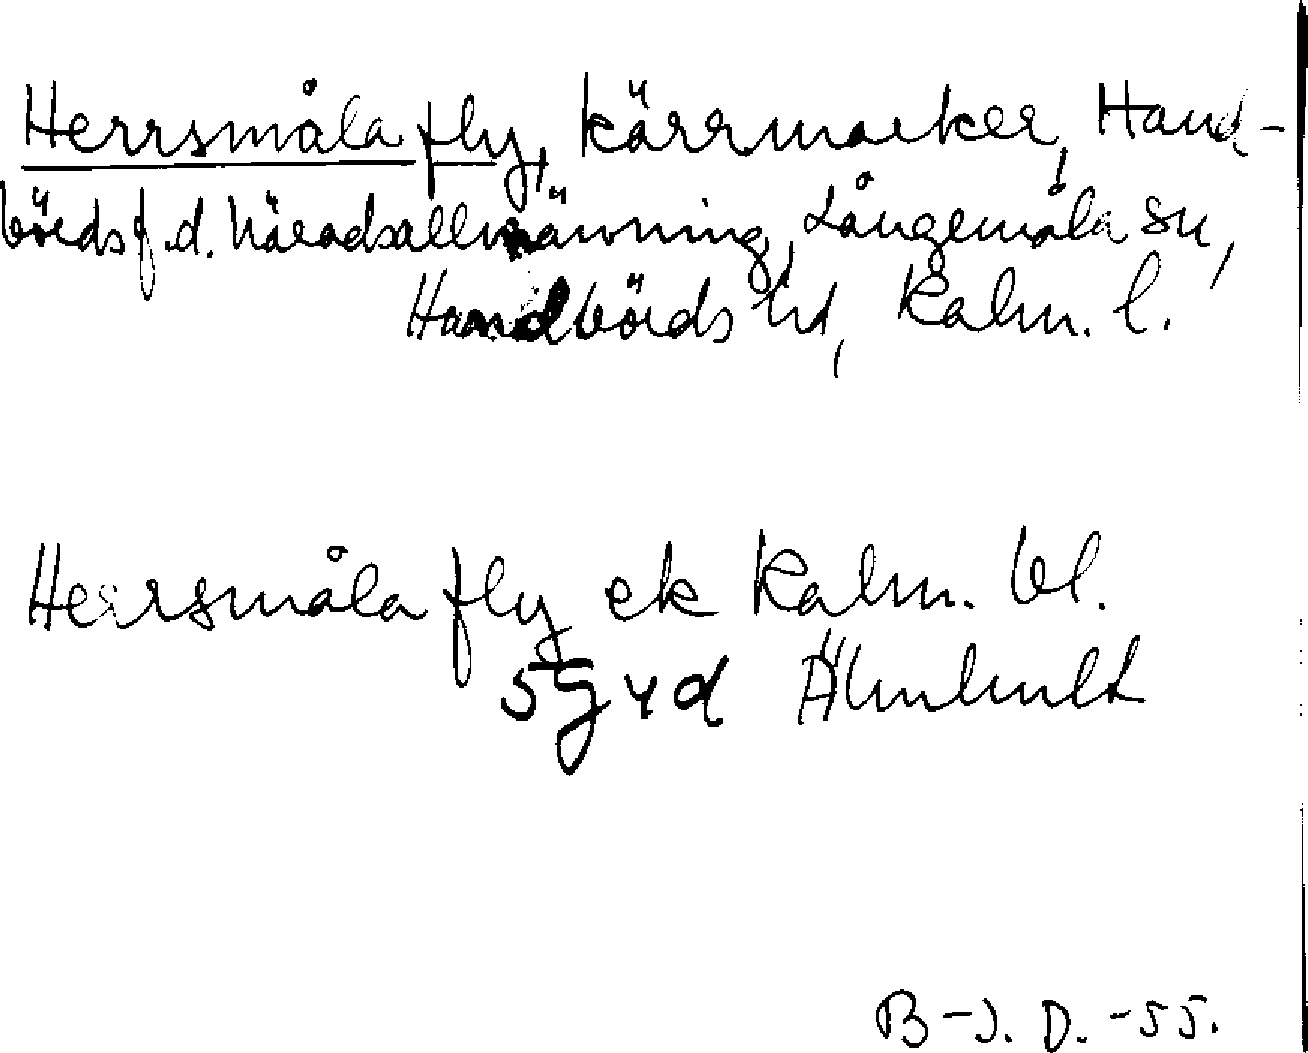 Herrsmåla fly, kärrmarker, Hand-
börds f.d. häradsallmänning, Långemåla sn,
Handbörds hd, Kalm. l.
Herrsmåla fly ek Kalm. bl.
5g4d Älmhult
B-J. D. -55.